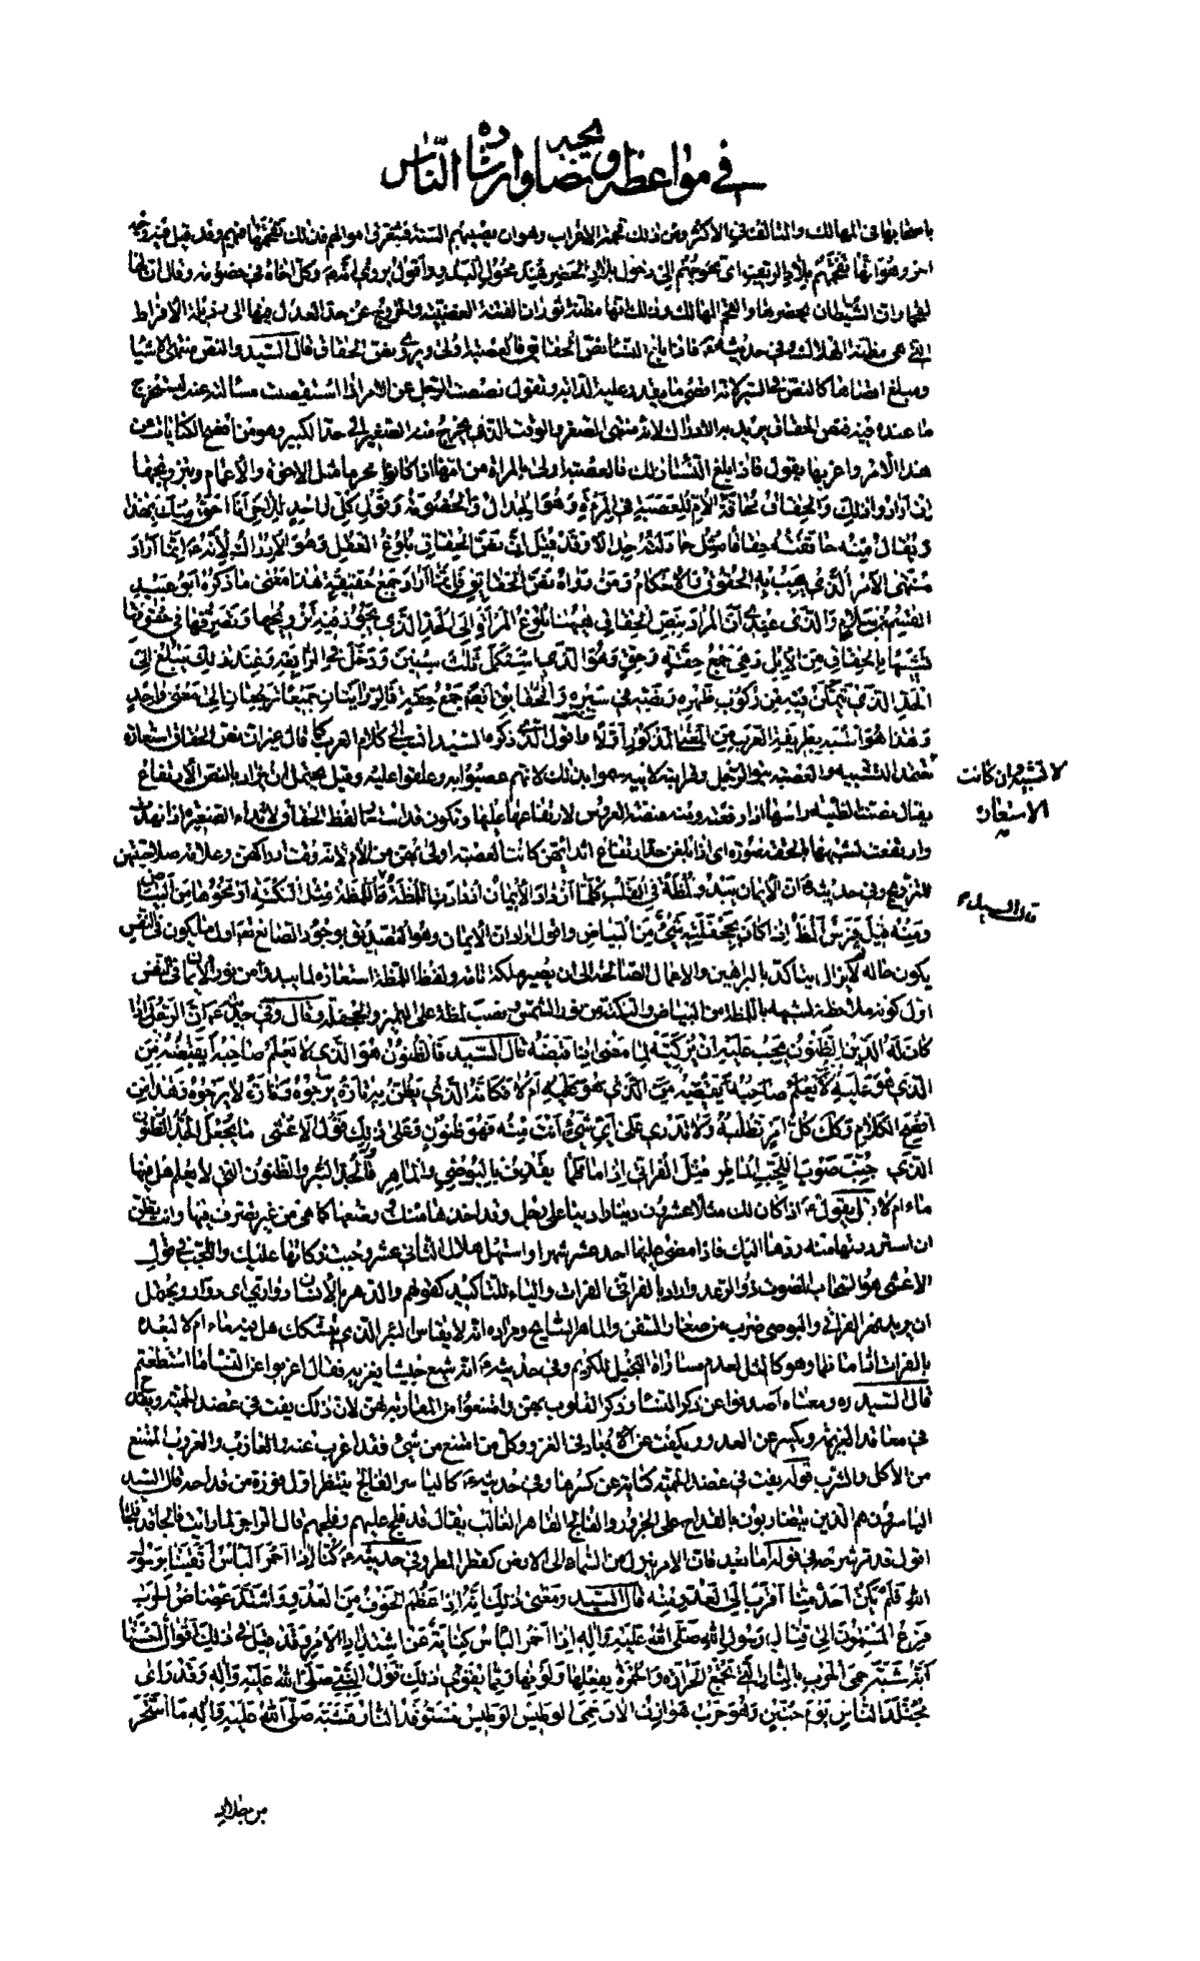 في مواعظه ونصايحه وارشاده الناس
باصحابها في المهالك والمتالف في الأكثر ومن ذلك قحمة الأعراب وهو ان يصيبهم السنة فتتعرق اموالهم فذلك تقحمها فيهم وقد قيل فيه وجه
اخر وهو انها تقحمهم بلاد الريف اى تحوجهم إلى دخول بلاد الحضر عند محول البدو اقول روى انه ع وكل اخاه في خصومة وقال ان لها
لقحما وان الشيطان يحضرها والقحم المهالك وذلك انها مظنة ثوران الفتنة الغضبية والخروج عن حد العدل فيها الى رذيلة الافراط
التى هى مظنة الهلاك وفى حديثه ع فاذا بلغ النساء نص الحقايق فالعصبة اولى ويروى نص الحقاق قال السيد والنص منتهى الاشياء
ومبلغ اقصاها كالنص فى السير لانه اقصى ما يقدر عليه الدابة وتقول نصصت الرجل عن الامر اذا استقصيت مسألته عنه ليستخرج
ما عنده فيه فنص الحقاق يريد به الادراك لانه منتهى الصغر والوقت الذى يخرج منه الصغير الى حد الكبير وهو من افصح الكنايات عن
هذا الامر واغربها يقول فاذا بلغ النساء ذلك فالعصبة اولى بالمراة من امها اذا كانوا محرما مثل الاخوة والاعمام وبتزويجها
ان ارادوا ذلك والحقاق محاقة الام للعصبة في المرءة وهو الجدال والخصومة وقول كل واحد للاخر انا احق منك بهذا
ويقال منه حاققته حقاقا مثل جادلته جدالا وقد قيل ان نص الحقاق بلوغ العقل وهو الادراك لانه ع انما اراد
منتهى الامر الذى يجب به الحقوق والاحكام ومن رواه نص الحقايق فانما اراد جمع حقيقة هذا معنى ما ذكره ابو عبيد
القسيم بن سلام والذى عندى ان المراد بنص الحقاق هيهنا بلوغ المرأة الى الحد الذى يجوز فيه تزويجها وتصرفها في حقوقها
تشبيها بالحقاق من الابل وهى جمع حقة وحق وهو الذى استكمل ثلث سنين ودخل في الرابعة وعند ذلك يبلغ الى
الحد الذى يتمكن فيه من ركوب ظهره ونصه في سيره والحقايق ايضا جمع حقة فالروايتان جميعا ترجعان الى معنى واحد
وهذا هو اشبه بطريقة العرب من المعنى المذكور اولا واقول الذى ذكره السيد انسب الى كلام العرب كما قال غير ان نص الحقاق استعارة
لا تشبيه وان كانت
الاستعارة
تعتمد التشبيه والعصبة بنو الرجل وقرابته لابيه سموا بذلك لانهم عصبوا به وعلقوا عليه وقيل يحتمل ان يراد بالنص الارتفاع
يقال نصت الظبية راسها اذا رفعته ومنه منصة العروس لارتفاعها عليها وتكون قد استعار لفظ الحقاق لاثداء الصغيرة اذا نهدت
وارتفعت لشبهها بالحقة صورة اى اذا بلغن حد ارتفاع اثدائهن كانت العصبة اولى بهن من الام لانه وقت ادراكهن وعلامة صلاحيتهن
للتزويج وفى حديثه ع ان الايمان يبدو لمظة في القلب كلما ازداد الايمان ازدادت اللمظة قال السيد ره واللمظة مثل النكتة او نحوها من البياض
ومنه قيل فرس المظ اذا كان بجحفلته شئ من البياض واقول اراد ان الايمان وهو التصديق بوجود الصانع تعالى اول ما يكون في النفس
يكون حالة لا يزال يتاكد بالبراهين والاعمال الصالحة الى ان يصير ملكة تامة ولفظ اللمظة استعارة لما يبدو من نور الايمان في النفس
اول كونه ملاحظة لشبهه باللمظة من البياض والنكتة من نور الشمس ونصب لمظة على التميز والجحفلة وقال وفى حديثه ع ان الرجل اذا
كان له الدين الظنون يجب عليه ان يزكيه لما مضى اذا قبضه قال السيد فالظنون هو الذى لا يعلم صاحبه ايقبضه من
الذى هو عليه ام لا فكانه الذى يظن به فتارة يرجوه وتارة لا يرجوه وهذا من
افصح الكلام وكذلك كل امر تطلبه ولا تدرى على اى شئ انت منه فهو ظنون وعلى ذلك قول الاعشى ما يجعل الجد الظنون
الذى جنب صوب اللجب الماطر مثل الفراتى اذا ما طما يقذف بالبوصى والماهر والجد البئر والظنون التى لا يعلم هل فيها
ماء ام لا يقول ع اذا كان لك مثلا عشرون دينارا دينا على رجل وقد اخذها منك ووضعها كما هى من غير تصرف فيها وانت تظن
ان استرددتها منه ردها اليك فاذا مضى عليها احد عشر شهرا واستهل هلال الثانى عشر وجبت زكاتها عليك واللجب في قول
الاعشى هو السحاب المصوت ذو الرعد واراد بالفراتى الفرات والياء للتاكيد كقولهم والدهر بالانسان دوارى اى دوار ويحتمل
ان يريد نهر الفرات والبوصى ضرب من صغار السفن والماهر السابح ومراده انه لا يقاس البئر الذى يشكك هل فيه ماء ام لا لبعده
بالفرات اذا ما طما وهو كالمثل لعدم مساواة البخيل للكريم وفى حديثه ع انه شيع جيشا يغزيه فقال اعزبوا عن النساء ما استطعتم
قال السيد ره ومعناه اصدفوا عن ذكر النساء وذكر القلوب بهن وامتنعوا من المقاربة لهن لان ذلك يفت في عضد الحمية ويقدح
في معاقد العزيمة ويكسر عن العدو ويكفت عن الابعاد في الغزو وكل من امتنع من شئ فقد اعزب عنه والعازب والعزوب الممتنع
من الاكل والشرب قوله يفت في عضد الحمية كناية عن كسرها وفى حديثه ع كالياسر الفالج ينتظر اول فوزة من قداحه قال السيد
الياسرون هم الذين يتضاربون بالقداح على الجزور والفالج القاهر الغالب يقال قد فلج عليهم وفلجهم قال الراجز لما رايت فالجا قد فلجا
اقول قد مر شرحه في قوله اما بعد فان الامر ينزل من السماء الى الارض كقطر المطر وفى حديثه ع كنا اذا احمر الباس اتقينا برسول
الله فلم يكن احد منا اقرب الى العدو منه قال السيد ومعنى ذلك انه اذا عظم الخوف من العدو واشتد عضاض الحرب
فزع المسلمون الى قتال رسول الله صلى الله عليه واله اذا احمر الباس كناية عن اشتداد الامر وقد قيل في ذلك اقوال احسنها
انه شبه حمى الحرب بالنار التى تجمع الحرارة والحمرة بفعلها ولونها ومما يقوى ذلك قول النبى صلى الله عليه واله وقد راى
مجتلد الناس يوم حنين وهو حرب هوازن الان حمى الوطيس الوطيس مستوقد النار فشبه صلى الله عليه واله ما استحر
من جلاد